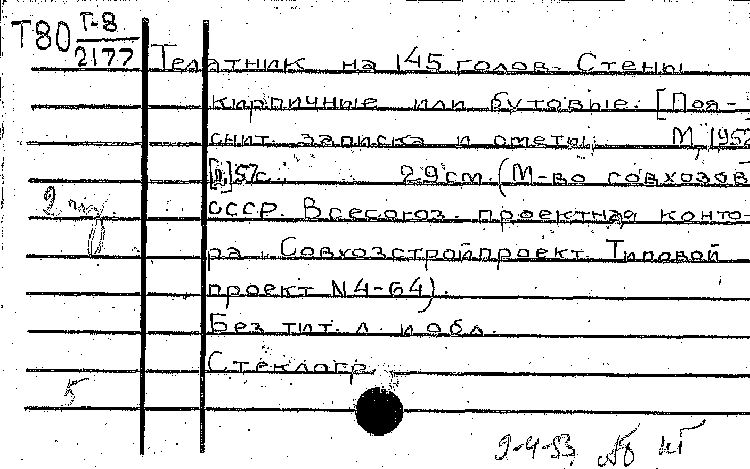 Т80 Т-8
2177
Телятник на 145 голов. Стены
кирпичные или бутовые. [Поя-
снит. записка и сметы]. М., 1952
57с. 29 см. (М-во совхозов
СССР. Всесоюз. проектная конто-
ра „Совхозстройпроект". Типовой
проект N 4-64).
Без тит. л. и обл.
Стеклогр.
2
5
9-4-53